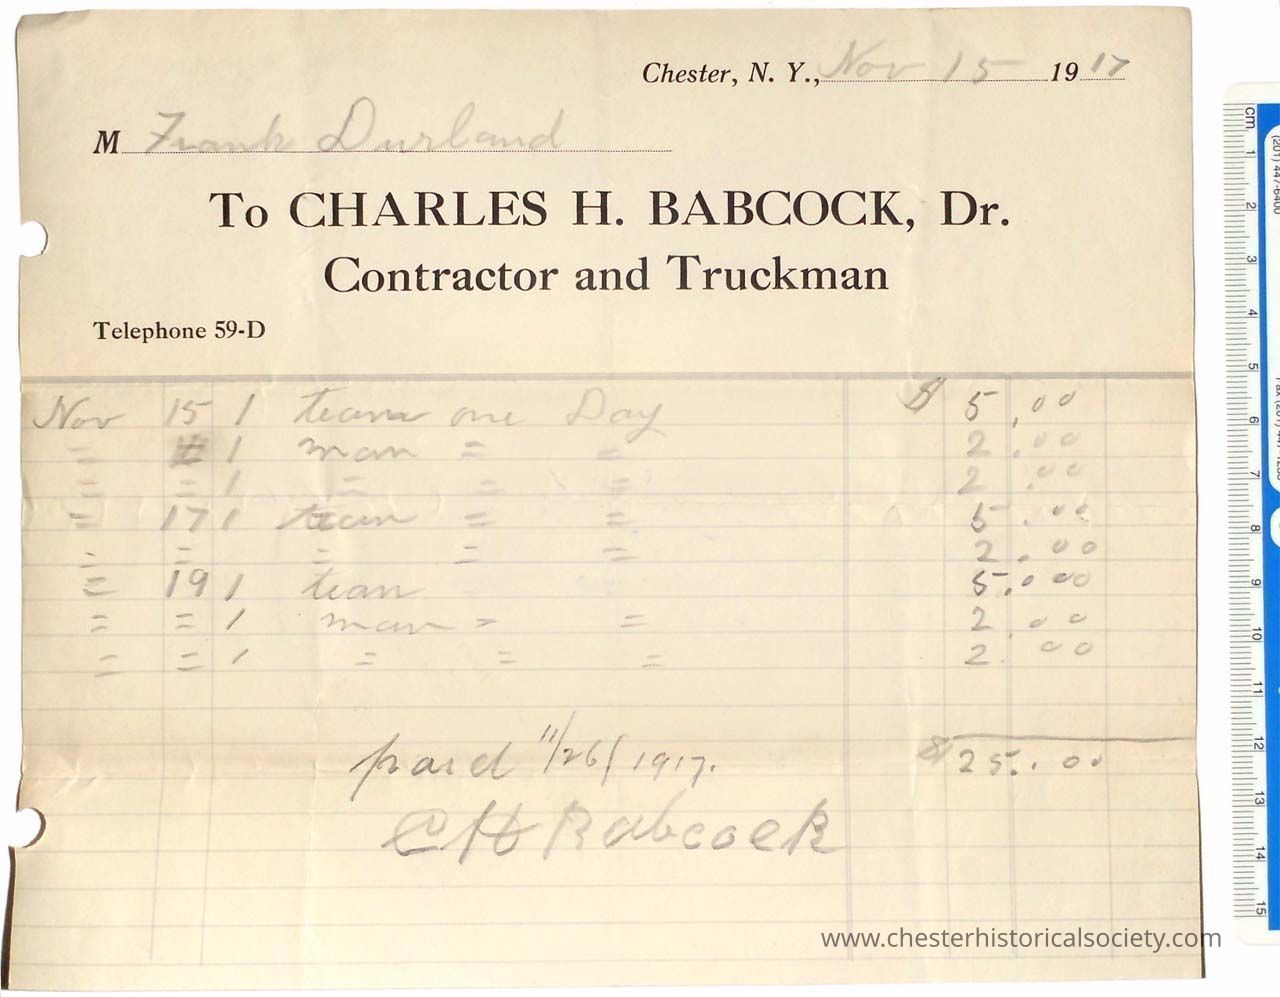 Chester, N. Y., Nov 15 1917
M Frank Durland
To CHARLES H. BABCOCK, Dr.
Contractor and Truckman
Telephone 59-D
Nov 15 1 team one Day $ 5.00
= 1 man = = 2.00
= = 1 = = = 2.00
= 17 1 team = = 5.00
= = = = = 2.00
= 19 1 team 5.00
= = 1 man = = 2.00
= = 1 = = = 2.00
paid 11/26/1917. $ 25.00
C H Babcock
www.chesterhistoricalsociety.com
cm 1 2 3 4 5 6 7 8 9 10 11 12 13 14 15
(201) 447-6400